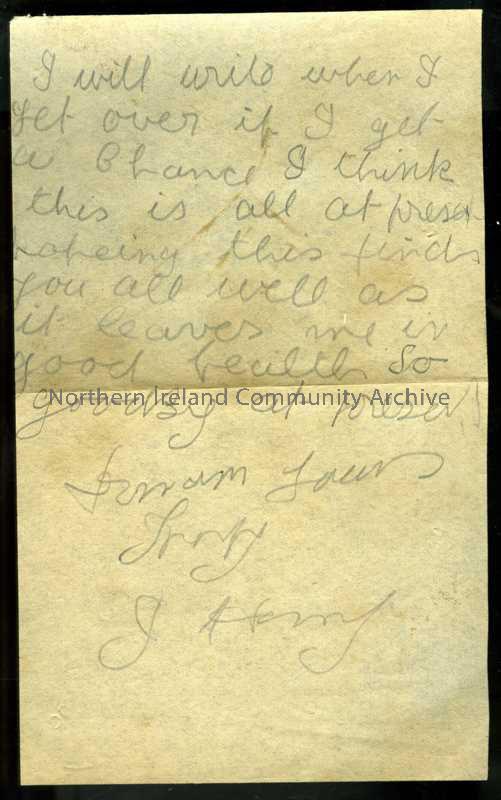 I will write when I
get over if I get
a Chance I think
this is all at presen
hopeing this finds
you all well as
it leaves me in
good health So
Northern Ireland Community Archive
goodby at present
I remain yours
J Henry